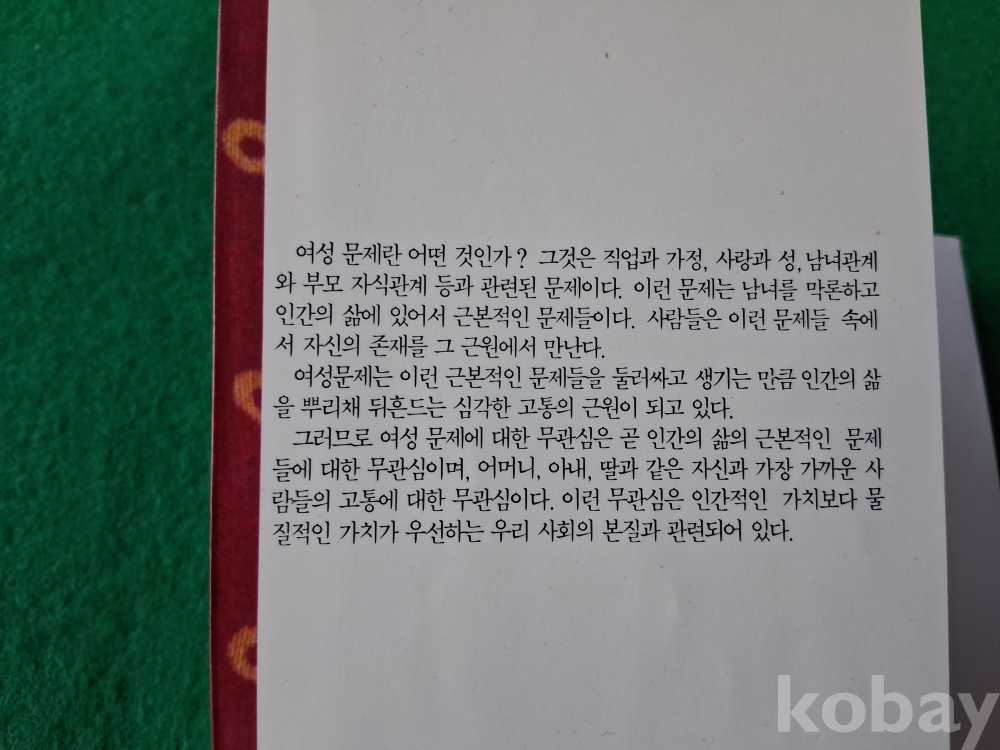 여성 문제란 어떤 것인가? 그것은 직업과 가정, 사랑과 성, 남녀관계
와 부모 자식관계 등과 관련된 문제이다. 이런 문제는 남녀를 막론하고
인간의 삶에 있어서 근본적인 문제들이다. 사람들은 이런 문제들 속에
서 자신의 존재를 그 근원에서 만난다.
여성문제는 이런 근본적인 문제들을 둘러싸고 생기는 만큼 인간의 삶
을 뿌리채 뒤흔드는 심각한 고통의 근원이 되고 있다.
그러므로 여성 문제에 대한 무관심은 곧 인간의 삶의 근본적인 문제
들에 대한 무관심이며, 어머니, 아내, 딸과 같은 자신과 가장 가까운 사
람들의 고통에 대한 무관심이다. 이런 무관심은 인간적인 가치보다 물
질적인 가치가 우선하는 우리 사회의 본질과 관련되어 있다.
kobay